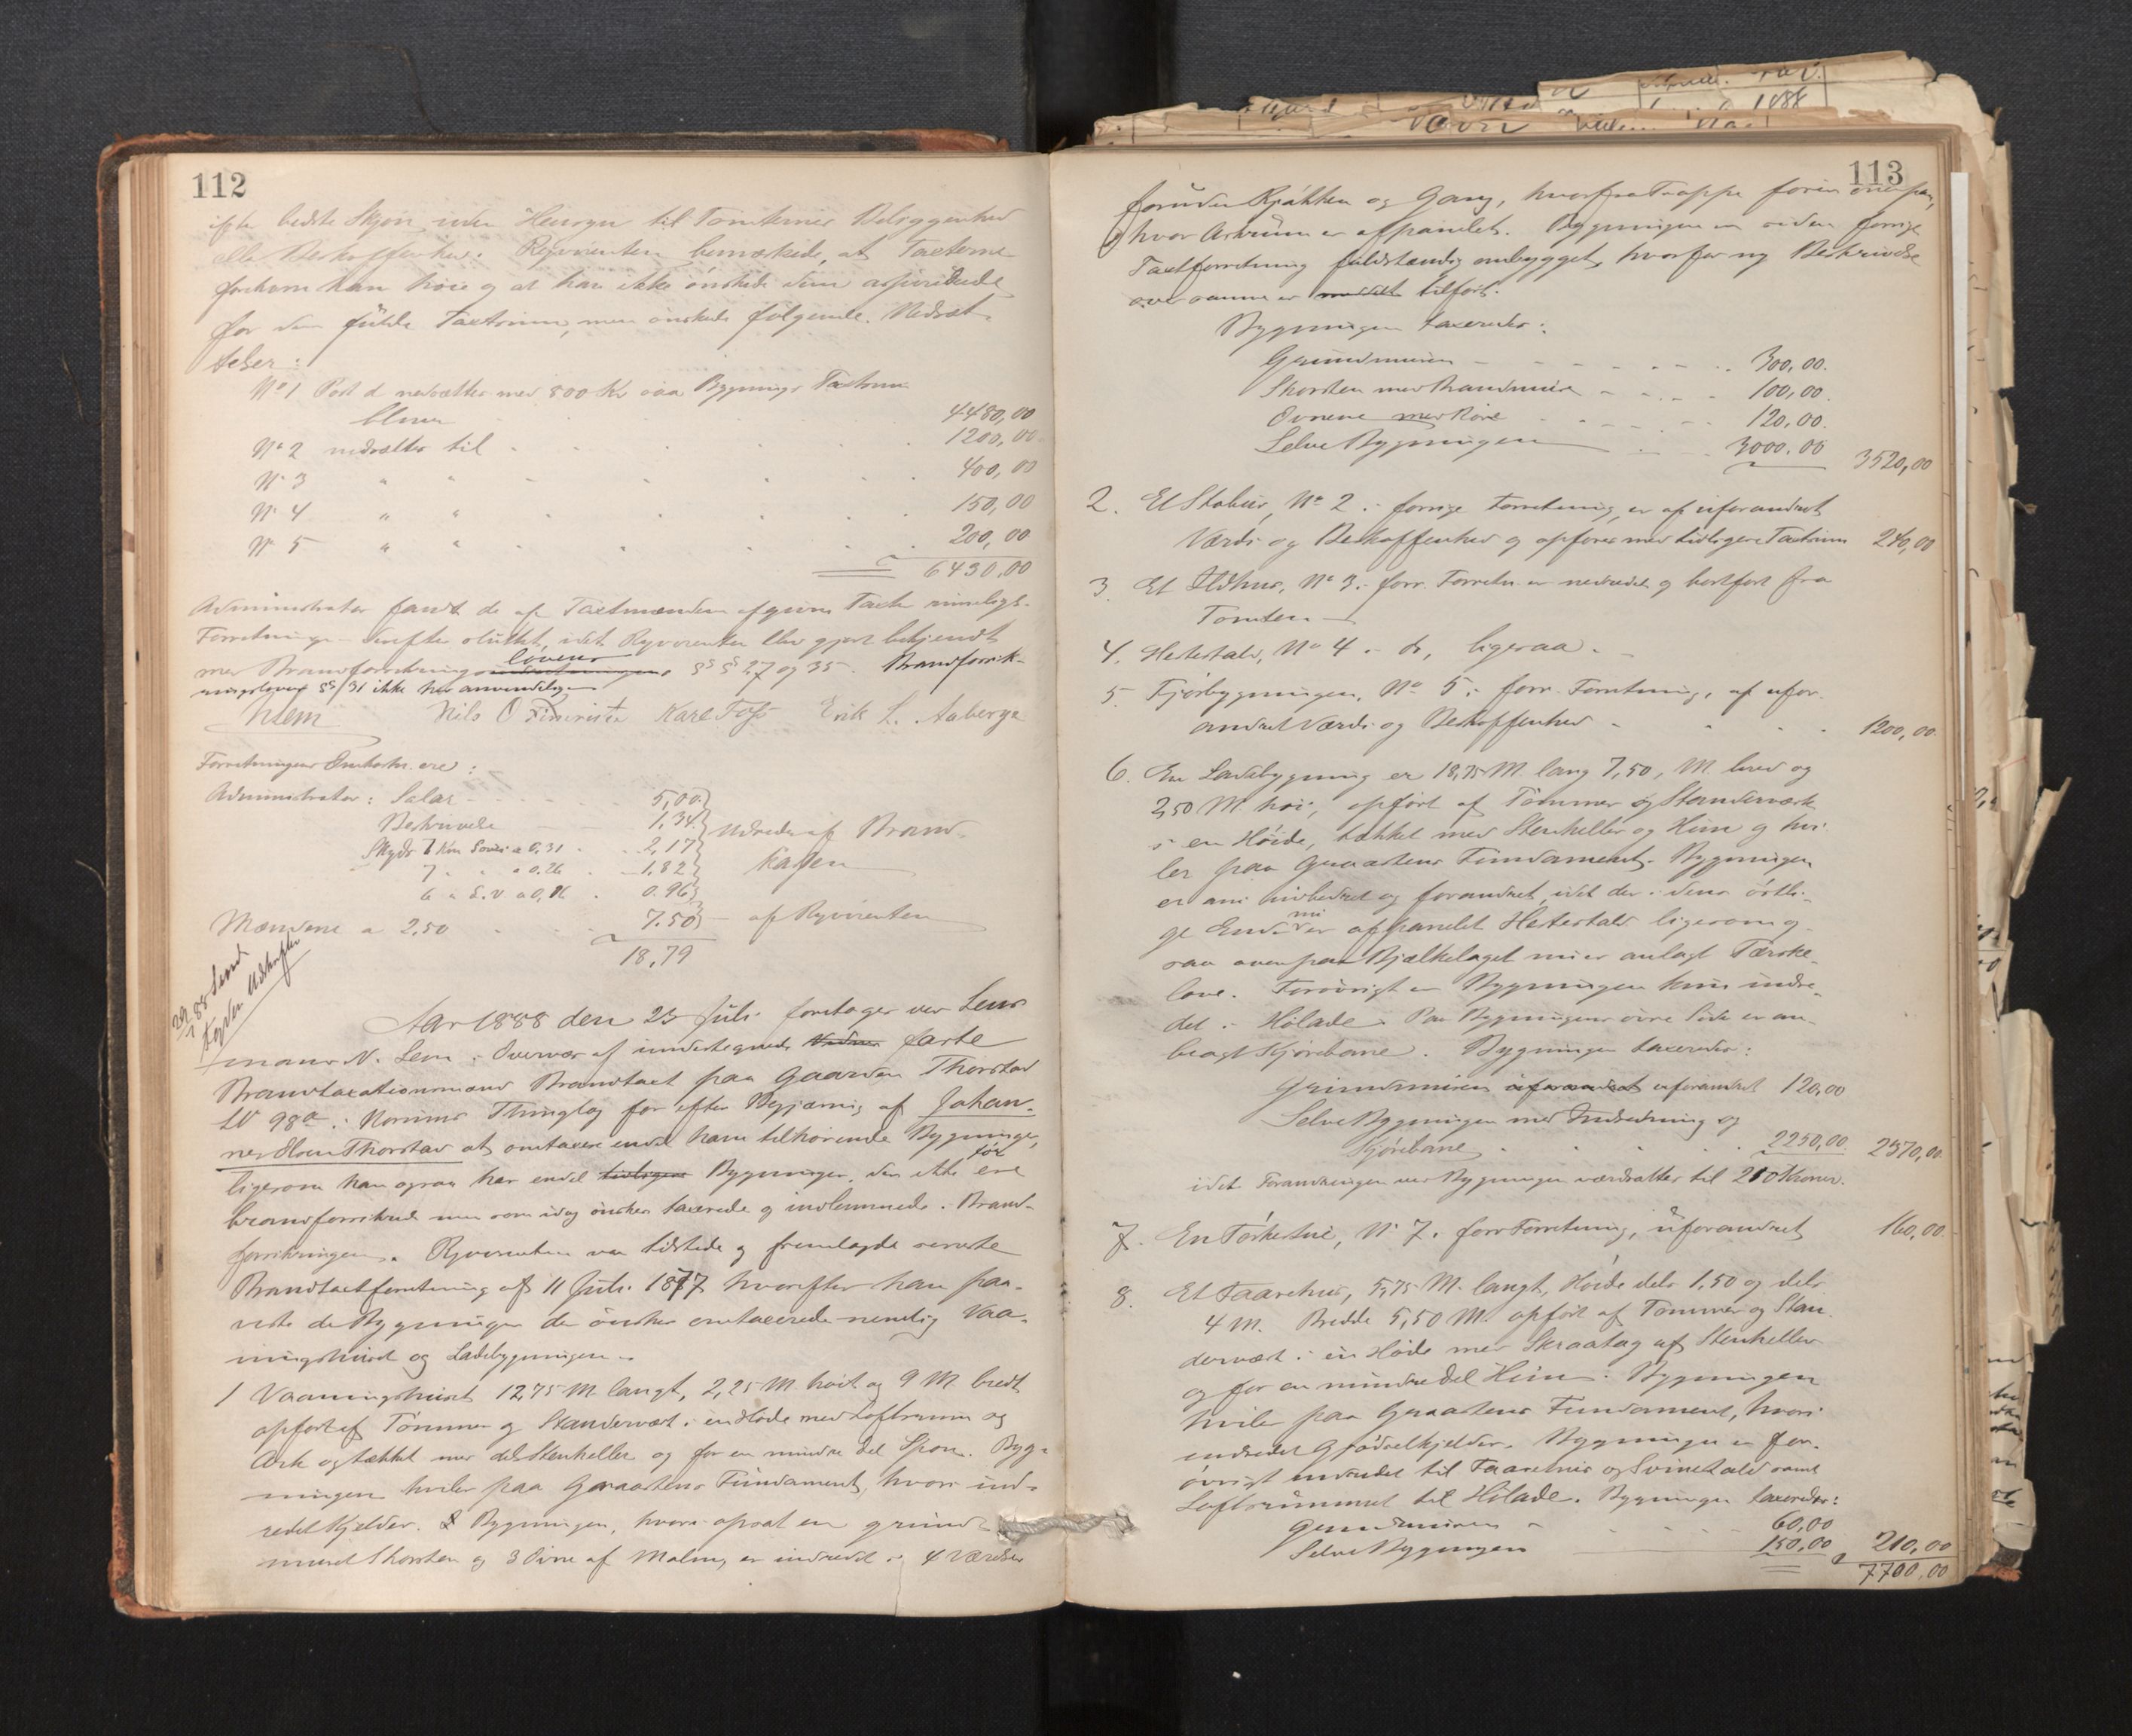 112
efter bedste Skjøn uden Hensyn til Tomternes Beliggenhed
eller Beskaffenhed. Rekvirenten bemærkede, at Taxterne
forekom ham høie og at han ikke ønskede dem assurerede
for den fulde Taxtsum, men ønskede følgende Nedsæt-
telser:
No 1 Post d nedsættes med 800 Kr saa Bygnings Taxtsum
bliver 4480,00
No 2 nedsættes til 1200,00
No 3 " " 400,00
No 4 " " 150,00
No 5 " " 200,00
6430,00
Administrator fandt de af Taxtmændene afgivne Taxter rimelige.
Forretningen derefter sluttet, idet Rekvirenten blev gjort bekjendt
med Brandforsikringslovens §§ 27 og 35. Brandforsik-
ringslovens §§ 31 ikke her anvendelig
NLem Nils O Fimreite Karl Foss Erik L. Aaberge
Forretningens Omkostn. ere:
Administrator: Salær 5,00
Beskrivelse 1,34 udredes af Brand-
Skyds 7 Km à 0,31 2,17
7 " " à 0,26 1,82 kassen
6 " à 0,16 0.96
Mændene a 2,50 7.50 - af Rekvirenten
18,79
29/7 88 Sendt
Afgaden Udskrifter
Aar 1888 den 23 Juli foretages ved Lens-
mand N. Lem i Overvær af undertegnede faste
Brandtaxationsmænd Brandtaxt paa Gaarden Thorstad
LN 98a i Norums Thinglag for efter Begjæring af Johan-
nes Olsen Thorstad at omtaxere endel ham tilhørende Bygninger,
ligesom han ogsaa har endel Bygninger, der ikke før ere
brandforsikrede men som idag ønskes taxerede og indlemmede i Brand-
forsikringen. Rekvirenten var tilstede og fremlagde seneste
Brandtaxtforretning af 11 Juli 1877 hvorefter han paa-
viste de Bygninger der ønskes omtaxerede nemlig Vaa-
ningshuset og Ladebygningen.
1 Vaaningshuset 12,75 M langt, 2,25 M høit og 9 M bredt
opført af Tømmer og Standerværk i en Høide med Loftsrum og
Ark og tækket med dels Stenheller og for en mindre Del Spon. Byg-
ningen hviler paa Graastens Fundament, hvori ind-
redet Kjelder. I Bygningen, hvori opsat en grund-
muret Skorsten og 3 Ovne af Malm, er indredet 4 Værelser
113
foruden Kjøkken og Gang, hvorfra Trappe fører ovenpaa,
hvor Arkrum er afpanelet. Bygningen er siden forrige
Taxtforretning fuldstændig ombygget, hvorfor ny Beskrivelse
over samme er tilført.
Bygningen taxeredes:
Grundmuren 300,00.
Skorsten med Brandmure 100,00.
Ovnene med Rør 120,00.
Selve Bygningen 3000.00 3520,00
2. Et Stabur, No 2 i forrige Forretning, er af uforandret
Værdi og Beskaffenhed og opføres med tidligere Taxtsum 240,00
3. Et Ildhus, No 3 i forr. Forretn. er nedrevet og bortført fra
Tomten
4. Hestestald, No 4 i do, ligesaa.
5. Fjøsbygningen, No 5 i forr. Forretning, af ufor-
andret Værdi og Beskaffenhed 1200,00.
6. En Ladebygning er 18,75 M. lang 7,50, M. bred og
2,50 M. høi, opført af Tømmer og Standerværk
i en Høide, tækket med Stenheller og Him og hvi-
ler paa Graastens Fundament. Bygningen
er nu indredet og forandret, idet der i dens østli-
ge Ende nu er afpanelet Hestestald ligesom og-
saa ovenpaa Bjælkelaget nu er anlagt Tærske-
love. Forøvrigt er Bygningen kun indre-
det i Hølade. Paa Bygningens øvre Side er an-
bragt Kjørebane. Bygningen taxeredes:
Grundmuren uforandret 120,00
Selve Bygningen med Indredning og
Kjørebane 2250,00 2370,00.
idet Forandringen ved Bygningen værdsættes til 210 Kroner.
7. En Tørkestue, No 7 i forr Forretning, uforandret 160,00.
8. Et Faarehus, 5,75 M. langt, Høide dels 1,50 og dels
4 M. Bredde 5,50 M. opført af Tømmer og Stan-
derværk i en Høide med Skraatag af Stenheller
og for en mindre Del Him. Bygningen
hviler paa Graastens Fundament, hvori
indredet Gjødselkjelder. Bygningen er for-
øvrigt indredet til Faarehus og Svinestald samt
Loftsrummet til Hølade. Bygningen taxeredes:
Grundmuren 60,00
Selve Bygningen 150,00 210,00
7700,00